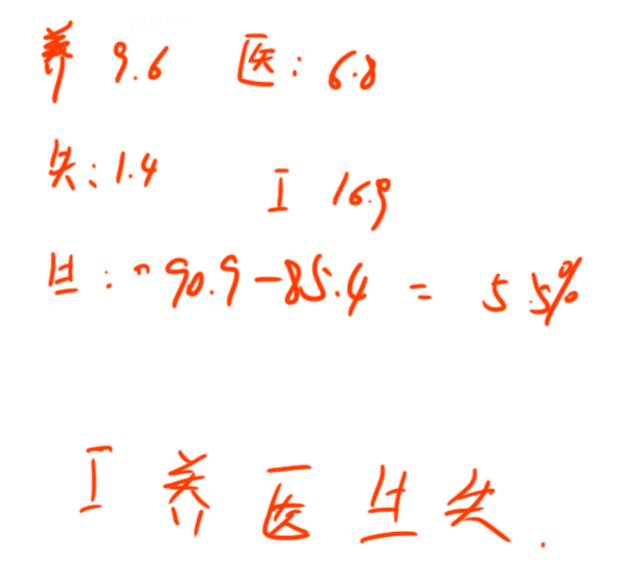 养 9.6 医: 6.8
失: 1.4 工 16.9
生: 90.9-85.4 = 5.5%
工 养 医 生 失.